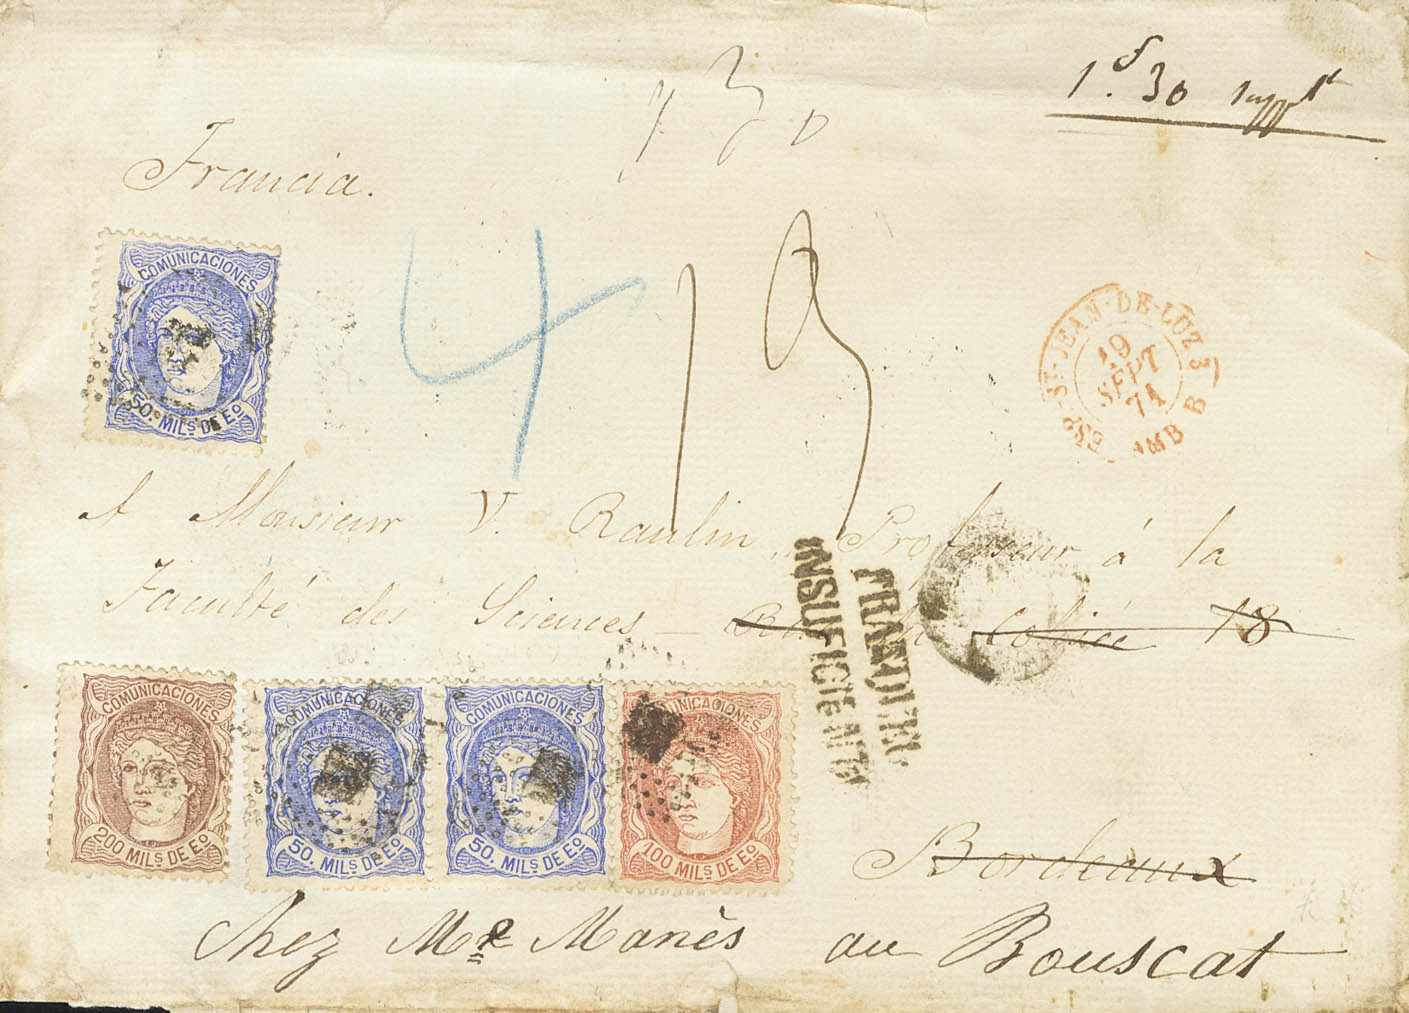 1f. 30
130
Francia.
COMUNICACIONES
50. MILS DE Eo
4
19
ESP. ST-JEAN-DE-LUZ 3
19
SEPT
71
AMB B
A Monsieur V. Raulin, Professeur à la
Faculté des Sciences — 18
FRANQUEO
INSUFICIENTE
COMUNICACIONES
200 MILS DE Eo
COMUNICACIONES
50. MILS DE Eo
COMUNICACIONES
50. MILS DE Eo
COMUNICACIONES
100 MILS DE Eo
Bordeaux
Chez Mr Manès au Bouscat